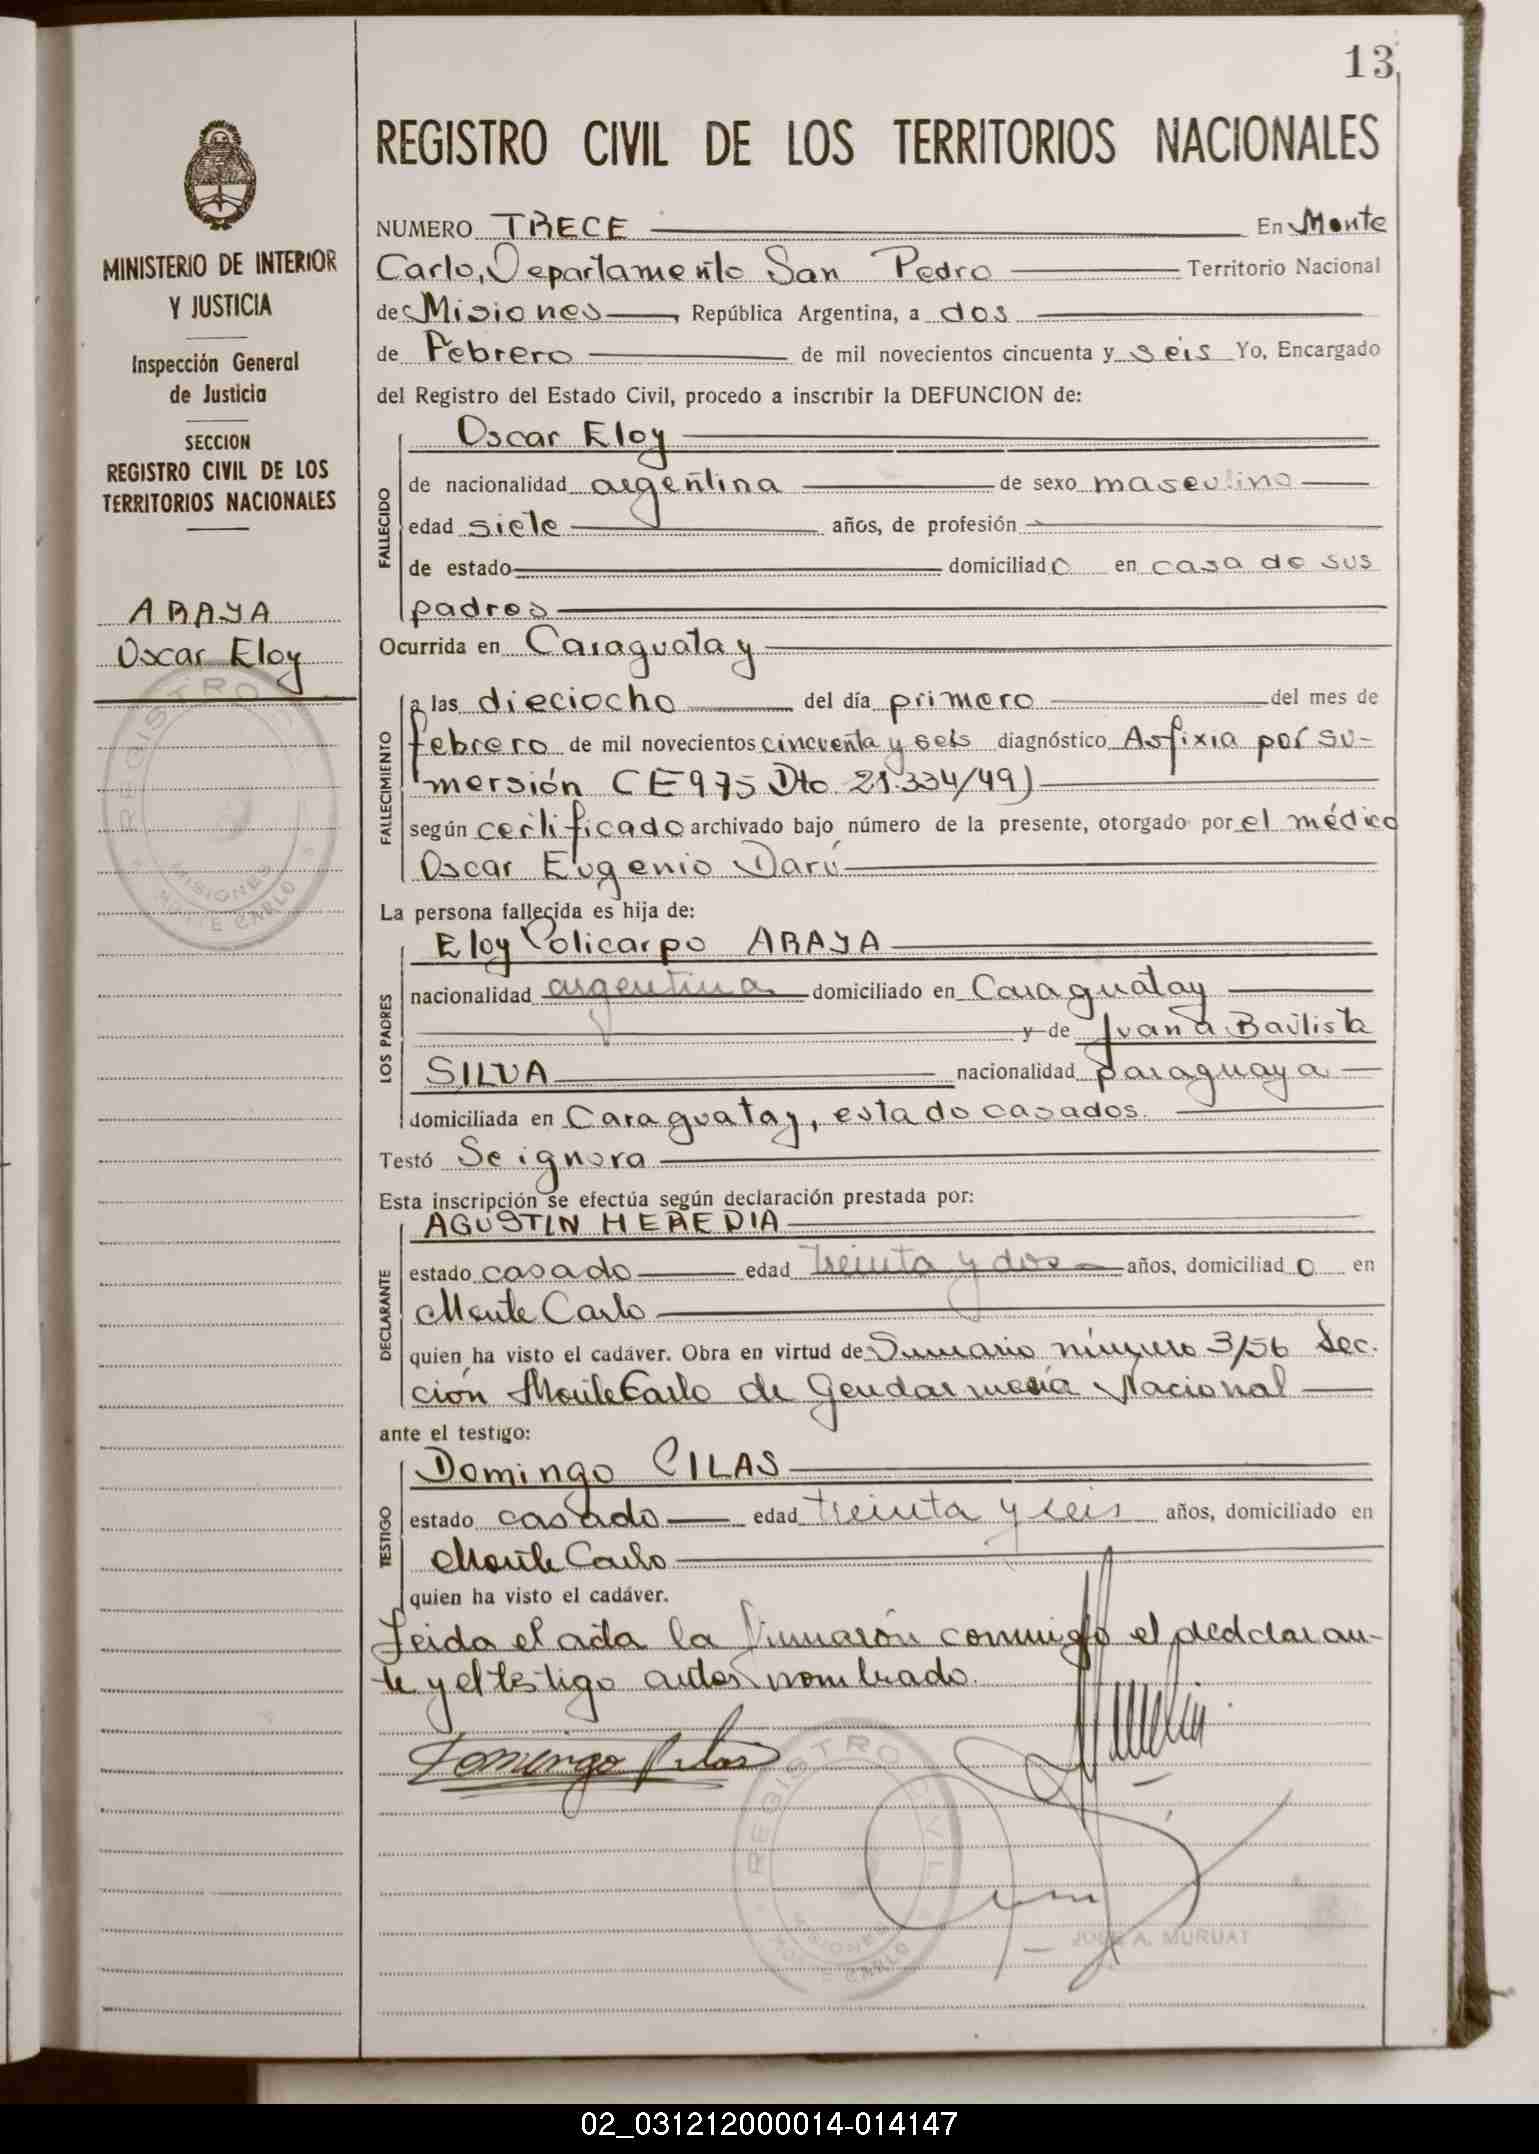 13
REGISTRO CIVIL DE LOS TERRITORIOS NACIONALES
MINISTERIO DE INTERIOR
Y JUSTICIA
Inspección General
de Justicia
SECCION
REGISTRO CIVIL DE LOS
TERRITORIOS NACIONALES
ARAYA
Oscar Eloy
REGISTRO
MISIONES
MONTE CARLO
NUMERO TRECE En Monte
Carlo, Departamento San Pedro Territorio Nacional
de Misiones, República Argentina, a dos
de Febrero de mil novecientos cincuenta y seis Yo, Encargado
del Registro del Estado Civil, procedo a inscribir la DEFUNCION de:
FALLECIDO
Oscar Eloy
de nacionalidad argentina de sexo masculino
edad siete años, de profesión
de estado domiciliado en casa de sus
padres
Ocurrida en Caraguatay
FALLECIMIENTO
a las dieciocho del día primero del mes de
febrero de mil novecientos cincuenta y seis diagnóstico Asfixia por su-
mersión (E975 Dto 21.334/49)
según certificado archivado bajo número de la presente, otorgado por el médico
Oscar Eugenio Darú
La persona fallecida es hija de:
LOS PADRES
Eloy Policarpo ARAYA
nacionalidad argentina domiciliado en Caraguatay
y de Juana Bautista
SILVA nacionalidad paraguaya
domiciliada en Caraguatay, estado casados.
Testó Se ignora
Esta inscripción se efectúa según declaración prestada por:
DECLARANTE
AGUSTIN HEREDIA
estado casado edad treinta y dos años, domiciliado en
Monte Carlo
quien ha visto el cadáver. Obra en virtud de Sumario número 3/56 Sec.
ción Monte Carlo de Gendarmería Nacional
ante el testigo:
TESTIGO
Domingo CILAS
estado casado edad treinta y seis años, domiciliado en
Monte Carlo
quien ha visto el cadáver.
Leida el acta la firmaron conmigo el declaran-
te y el testigo antes nombrado.
Domingo
REGISTRO CIVIL
MISIONES
CARLO
JOSE A. MURUAT
02_031212000014-014147